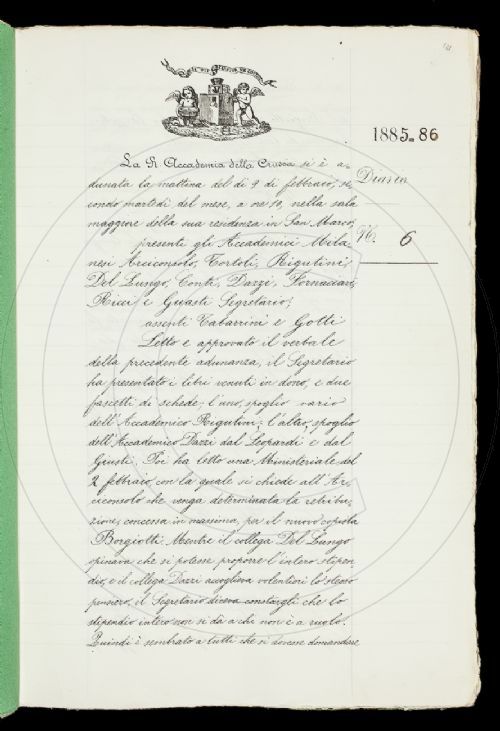 1885-86
La R. Accademia della Crusca si è a-
dunata la mattina del dì 9 di febbraio, se-
condo martedì del mese, a ore 10, nella sala
maggiore della sua residenza in San Marco;
Diario
N.º 6
presenti gli Accademici Mila-
nesi Arciconsolo, Tortoli, Rigutini,
Del Lungo, Conti, Dazzi, Fornaciari,
Ricci e Guasti Segretario;
assenti Tabarrini e Gotti
Letto e approvato il verbale
della precedente adunanza, il Segretario
ha presentato i libri venuti in dono, e due
fascetti di schede; l'uno, spoglio vario
dell'Accademico Rigutini; l'altro, spoglio
dell'Accademico Dazzi dal Leopardi e dal
Giusti. Poi ha letto una Ministeriale del
2 febbraio, con la quale si chiede all'Ar-
ciconsolo che venga determinata la retribu-
zione, concessa in massima, per il nuovo copista
Borgiotti. Mentre il collega Del Lungo
opinava che si potesse proporre l'intero stipen-
dio, e il collega Dazzi accoglieva volentieri lo stesso
pensiero, il Segretario diceva constargli che lo
stipendio intero non si dà a chi non è a ruolo.
Quindi è sembrato a tutti che si dovesse domandare